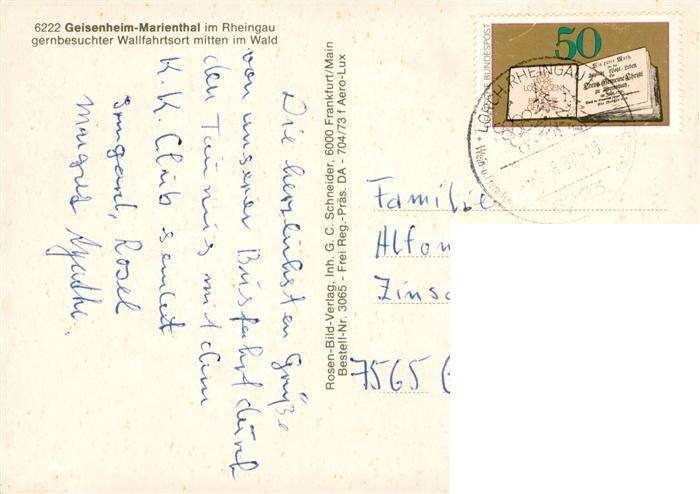 6222 Geisenheim-Marienthal im Rheingau
gernbesuchter Wallfahrtsort mitten im Wald
Die herzlichsten Grüße
von unserer Busfahrt durch
den Taunus mit dem
K. K. Club sendet
Irmgard, Rosel
Margret Agathe.
Rosen-Bild-Verlag. Inh. G. C. Schneider, 6000 Frankfurt/Main
Bestell-Nr. 3065 - Frei Reg.-Präs. DA - 704/73 / Aero-Lux
DEUTSCHE BUNDESPOST
50
LOSUNGEN
LORCH, RHEINGAU
Wein
Familie
Alfon
Zinsc
7565